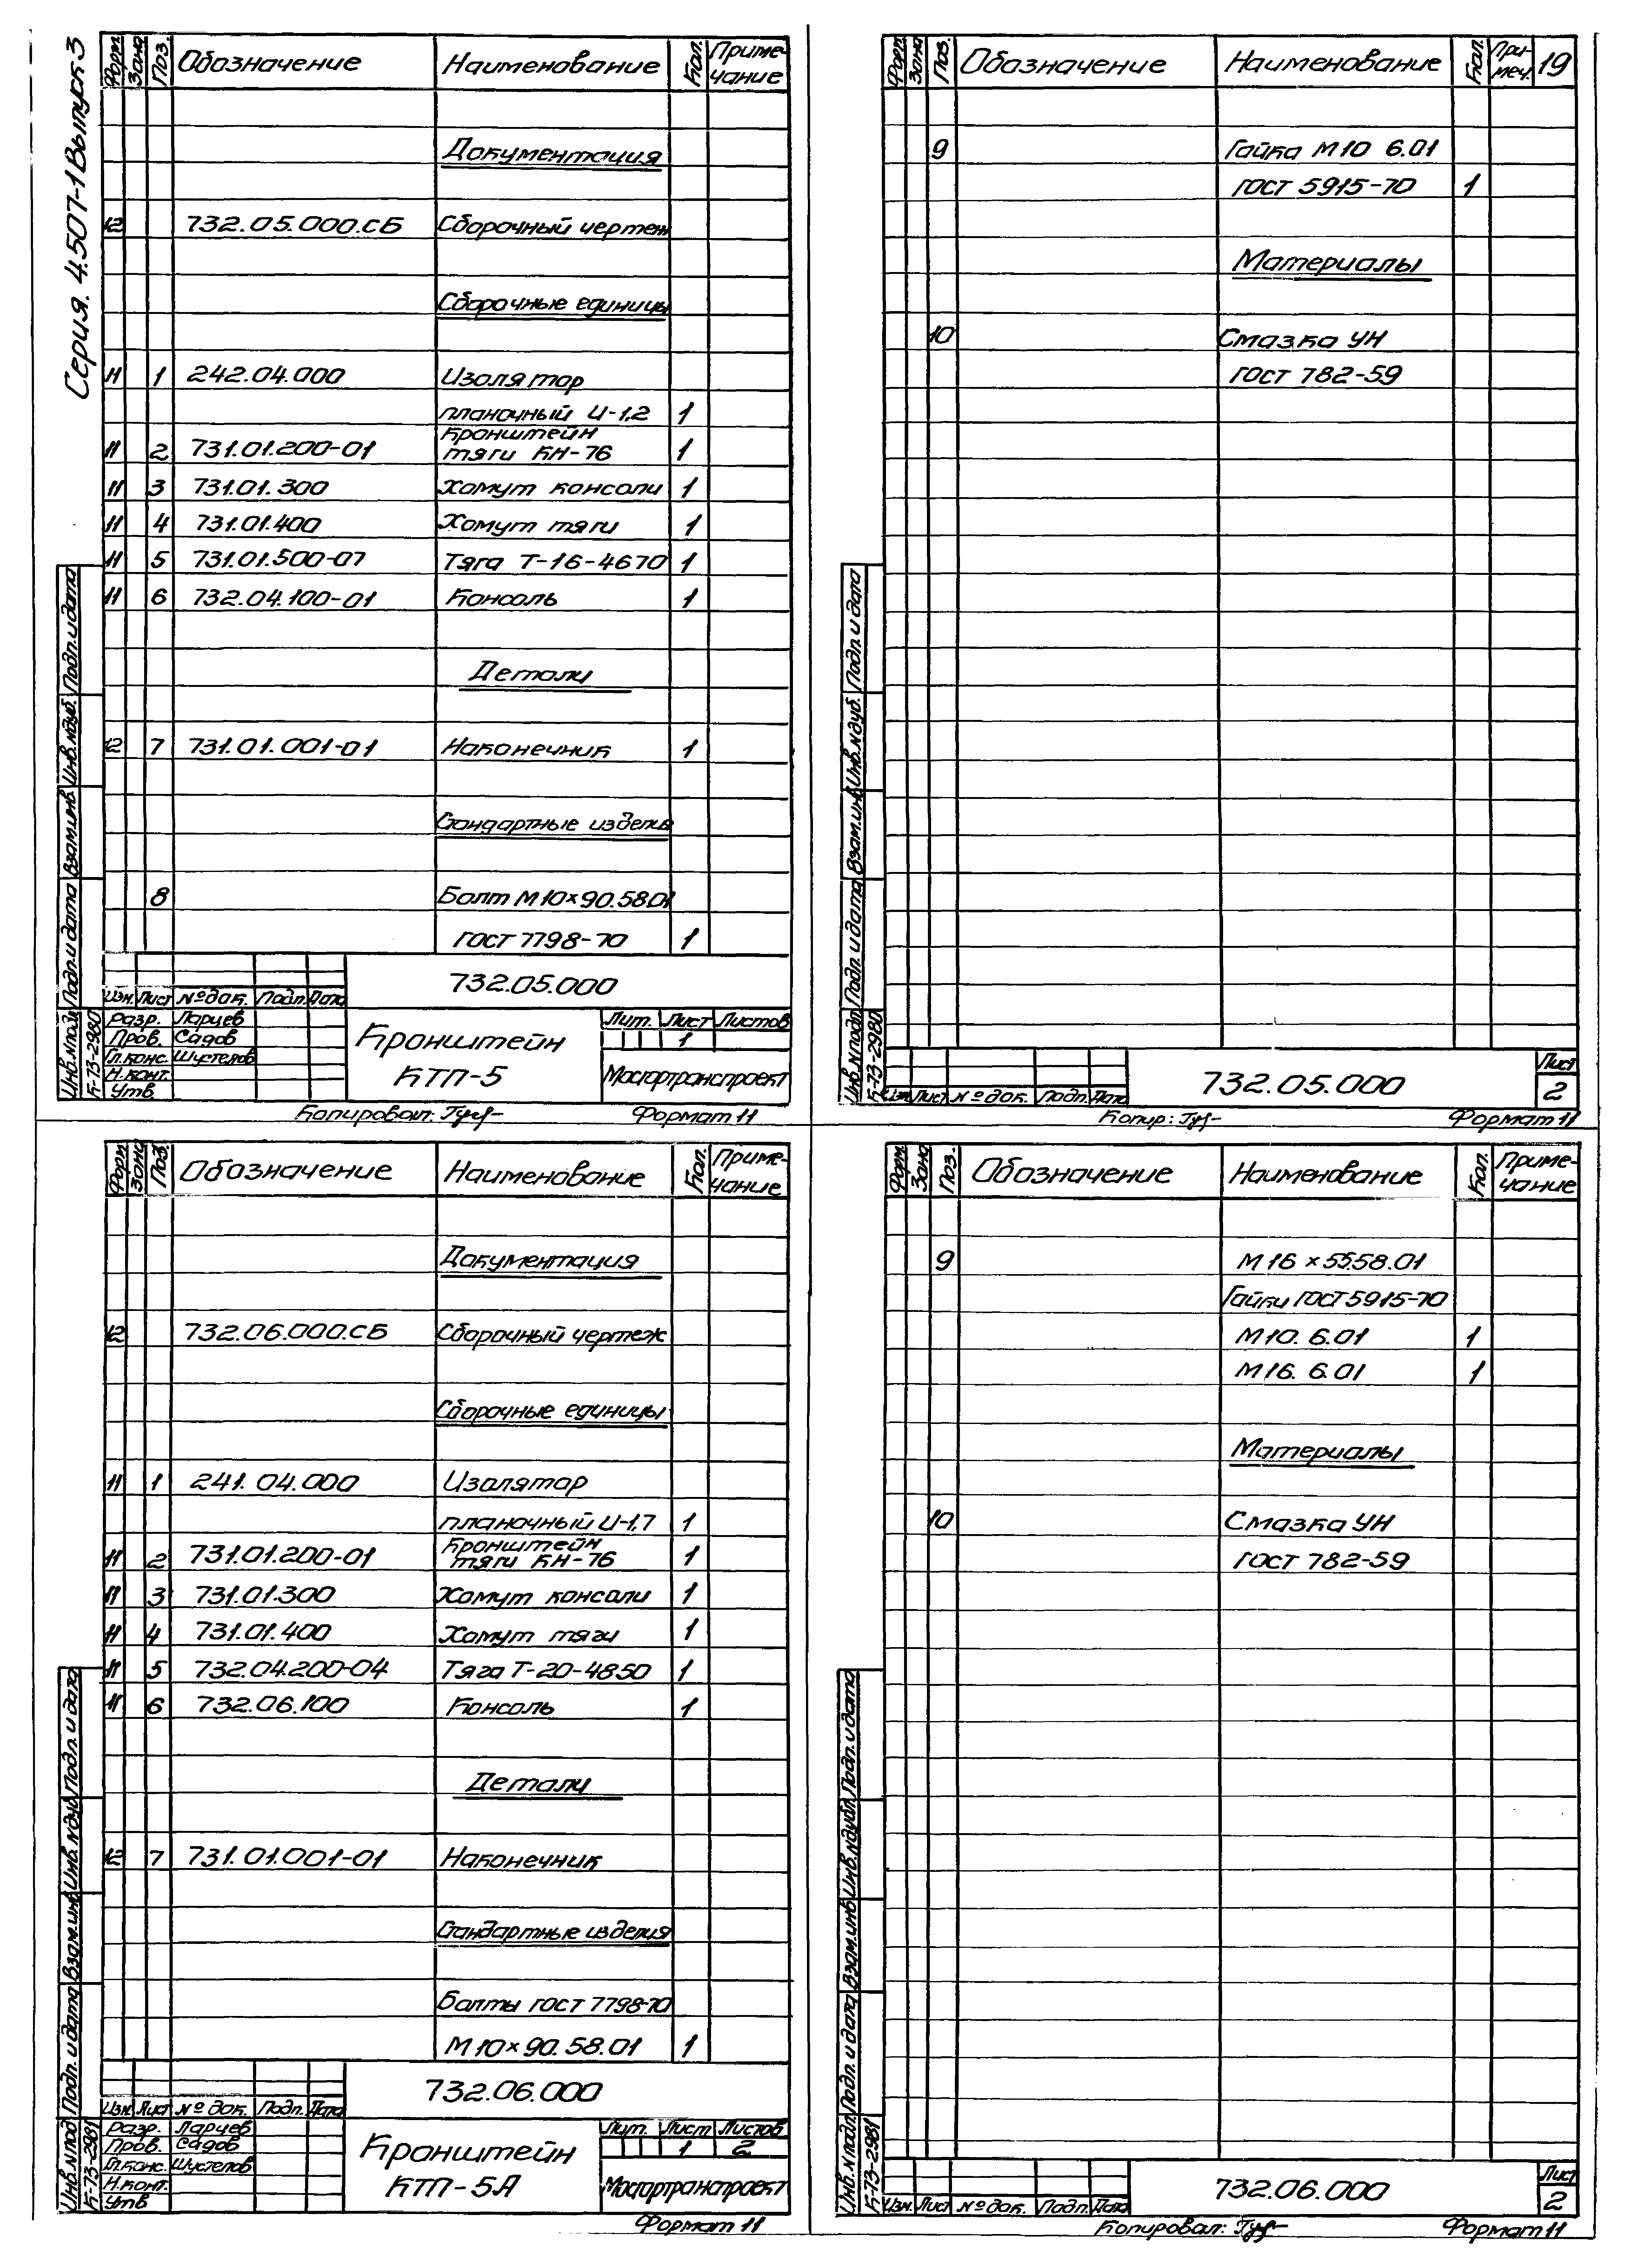 Серия. 4.507-1 Выпуск 3
Форм. Зона Поз. Обозначение Наименование Кол. Приме-
чание
Документация
12 732.05.000.СБ Сборочный чертеж
Сборочные единицы
11 1 242.04.000 Изолятор
планочный И-1,2 1
Кронштейн
11 2 731.01.200-01 тяги КН-76 1
11 3 731.01.300 Хомут консоли 1
11 4 731.01.400 Хомут тяги 1
11 5 731.01.500-07 Тяга Т-16-4670 1
11 6 732.04.100-01 Консоль 1
Детали
12 7 731.01.001-01 Наконечник 1
Стандартные изделия
8 Болт М10×90.58.01
ГОСТ 7798-70 1
732.05.000
Изм. Лист № док. Подп. Дата
Разр. Ларцев
Пров. Садов
Гл.конс. Шустелов
Н.конт.
Утв.
Кронштейн
КТП-5
Лит. Лист Листов
1
Мосгортранспроект
Инв.№подл. Подп. и дата Взам.инв. Инв.№дуб. Подп. и дата
К-73-2980
Копировал: Формат 11
Форм. Зона Поз. Обозначение Наименование Кол. При-
меч. 19
9 Гайка М10 6.01
ГОСТ 5915-70 1
Материалы
10 Смазка УН
ГОСТ 782-59
Инв.№подл. Подп. и дата Взам.инв. Инв.№дуб. Подп. и дата
К-73-2980
Изм. Лист № док. Подп. Дата
732.05.000
Лист
2
Копир: Формат 11
Форм. Зона Поз. Обозначение Наименование Кол. Приме-
чание
Документация
12 732.06.000.СБ Сборочный чертеж
Сборочные единицы
11 1 241.04.000 Изолятор
планочный И-1,7 1
Кронштейн
11 2 731.01.200-01 тяги КН-76 1
11 3 731.01.300 Хомут консоли 1
11 4 731.01.400 Хомут тяги 1
11 5 732.04.200-04 Тяга Т-20-4850 1
11 6 732.06.100 Консоль 1
Детали
12 7 731.01.001-01 Наконечник
Стандартные изделия
Болты ГОСТ 7798-70
М10×90.58.01 1
732.06.000
Изм. Лист № док. Подп. Дата
Разр. Ларцев
Пров. Садов
Гл.конс. Шустелов
Н.конт.
Утв
Кронштейн
КТП-5А
Лит. Лист Листов
1 2
Мосгортранспроект
Инв.№подл Подп. и дата Взам.инв Инв.№дуб Подп. и дата
К-73-2981
Формат 11
Форм. Зона Поз. Обозначение Наименование Кол. Приме-
чание
9 М16×55.58.01
Гайки ГОСТ 5915-70
М10. 6.01 1
М16. 6.01 1
Материалы
10 Смазка УН
ГОСТ 782-59
Инв.№подл Подп. и дата Взам.инв Инв.№дубл. Подп. и дата
К-73-2981
Изм. Лист № док. Подп. Дата
732.06.000
Лист
2
Копировал: Формат 11